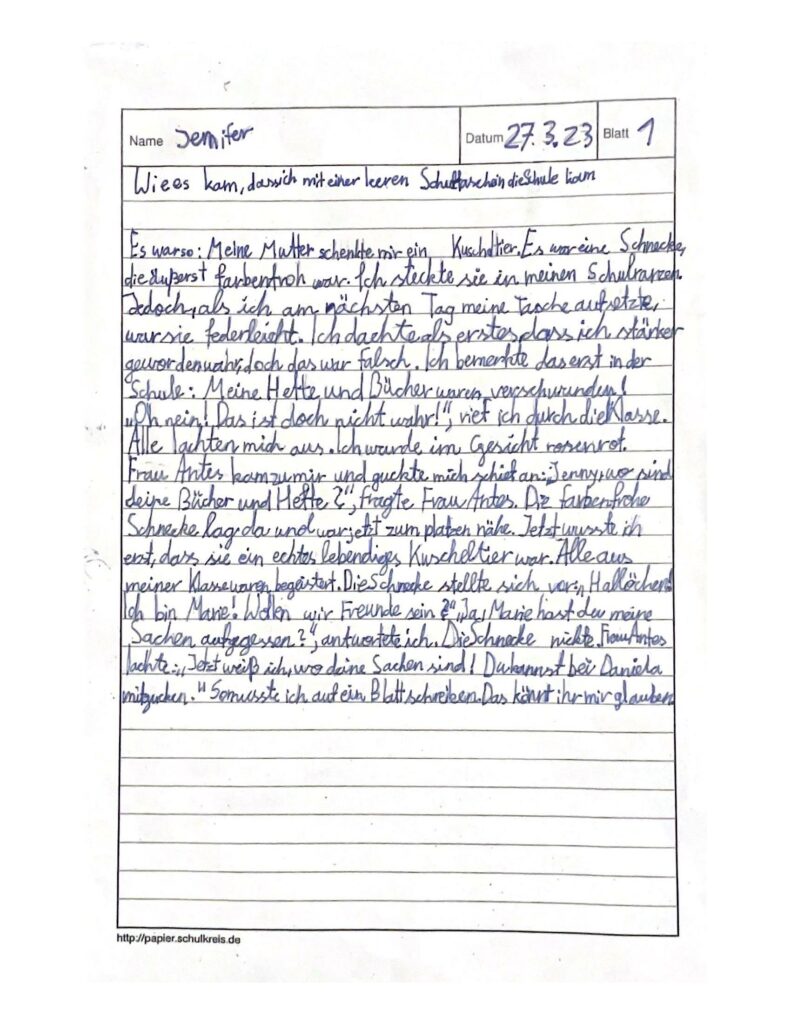 Name Jemifer Datum 27.3.23 Blatt 1
Wie es kam, dass ich mit einer leeren Schultasche in die Schule kam
Es war so: Meine Mutter schenkte mir ein Kuscheltier. Es war eine Schnecke,
die äußerst farbenfroh war. Ich steckte sie in meinen Schulranzen.
Jedoch, als ich am nächsten Tag meine Tasche aufsetzte,
war sie federleicht. Ich dachte als erstes, dass ich stärker
geworden wahr, doch das war falsch. Ich bemerkte das erst in der
Schule: Meine Hefte und Bücher waren verschwunden!
„Oh nein! Das ist doch nicht wahr!", rief ich durch die Klasse.
Alle lachten mich aus. Ich wurde im Gesicht rosenrot.
Frau Antes kam zu mir und guckte mich schief an: „Jenny, wo sind
deine Bücher und Hefte?", fragte Frau Antes. Die farbenfrohe
Schnecke lag da und war jetzt zum platzen nähe. Jetzt wusste ich
erst, dass sie ein echtes lebendiges Kuscheltier war. Alle aus
meiner Klasse waren begeistert. Die Schnecke stellte sich vor: „Hallöchen!
Ich bin Marie! Wollen wir Freunde sein?" „Ja, Marie hast du meine
Sachen aufgegessen?", antwortete ich. Die Schnecke nickte. Frau Antes
lachte: „Jetzt weiß ich, wo deine Sachen sind! Du kannst bei Daniela
mitgucken." So musste ich auf ein Blatt schreiben. Das könnt ihr mir glauben
http://papier.schulkreis.de